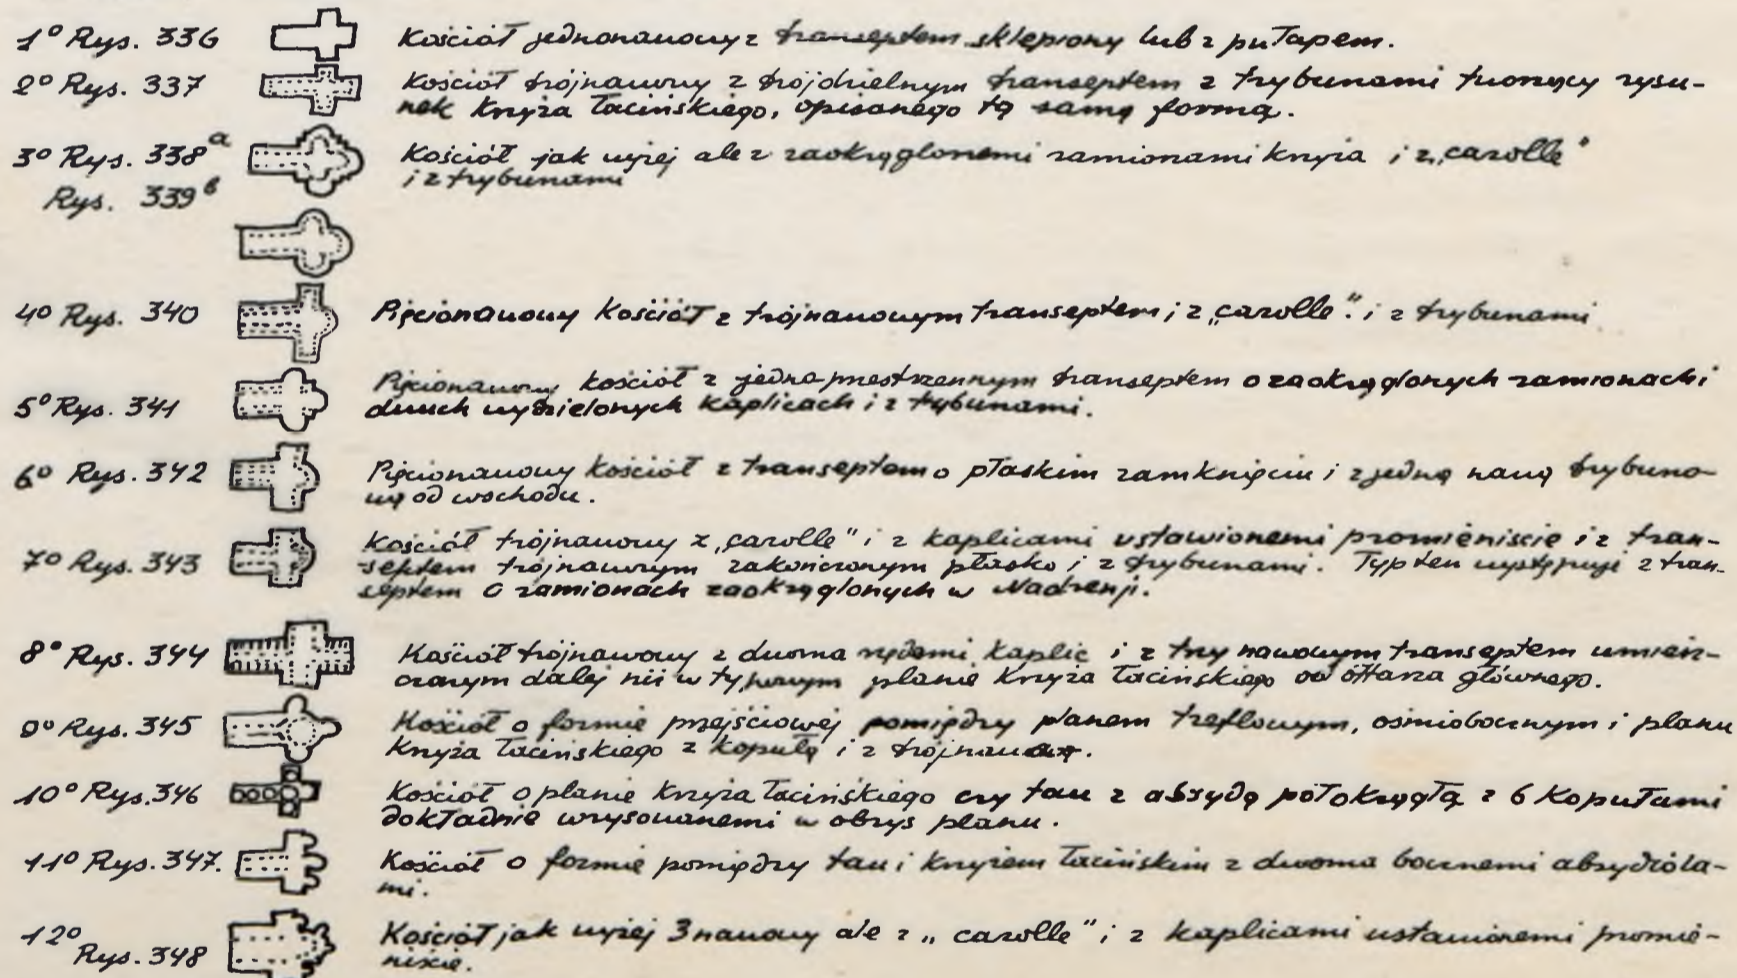 1° Rys. 336 Kościół jednonawowy z transeptem sklepiony lub z pułapem.
2° Rys. 337 Kościół trójnawowy z trójdzielnym transeptem z trybunami tworzący rysu-
nek krzyża łacińskiego, opisanego tą samą formą.
3° Rys. 338 a Kościół jak wyżej ale z zaokrąglonemi ramionami krzyża i z „carolle"
i z trybunami
Rys. 339 b
4° Rys. 340 Pięcionawowy kościół z trójnawowym transeptem i z „carolle". i z trybunami
5° Rys. 341 Pięcionawowy kościół z jednoprzestrzennym transeptem o zaokrąglonych ramionach i
dwuch wydzielonych kaplicach i z trybunami.
6° Rys. 342 Pięcionawowy kościół z transeptem o płaskim zamknięciu i z jedną nawą trybuno-
wą od wschodu.
7° Rys. 343 Kościół trójnawowy z „carolle" i z kaplicami ustawionemi promieniście i z tran-
septem trójnawowym zakończonym płasko i z trybunami. Typ ten występuje z tran-
septem o ramionach zaokrąglonych w Nadrenji.
8° Rys. 344 Kościół trójnawowy z dwoma rzędami kaplic i z trzy nawowym transeptem umiesz-
czonym dalej niż w typowym planie krzyża łacińskiego od ołtarza głównego.
9° Rys. 345 Kościół o formie przejściowej pomiędzy planem treflowym, ośmiobocznym i planu
krzyża łacińskiego z kopułą i z trójnawą.
10° Rys. 346 Kościół o planie krzyża łacińskiego czy tau z absydą półokrągłą z 6 kopułami
dokładnie wrysowanemi w obrys planu.
11° Rys. 347. Kościół o formie pomiędzy tau i krzyżem łacińskim z dwoma bocznemi absydióla-
mi.
12° Rys. 348 Kościół jak wyżej 3 nawowy ale z „carolle" i z kaplicami ustawionemi promie-
niście.